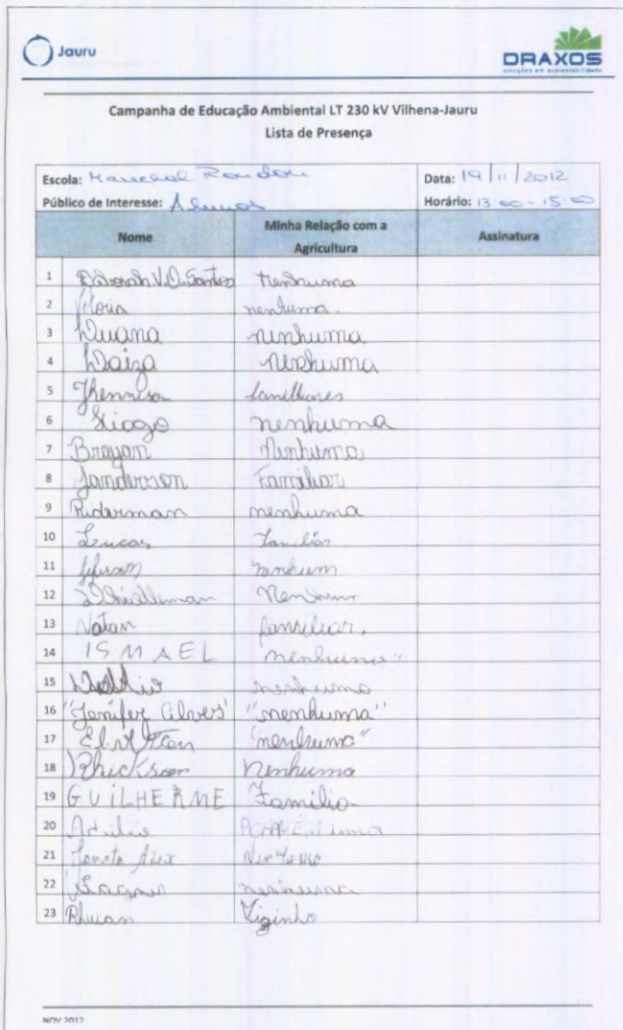 Jauru
DRAXOS
soluções em sustentabilidade
Campanha de Educação Ambiental LT 230 kV Vilhena-Jauru
Lista de Presença
Escola: Marechal Rondon Data: 19/11/2012
Público de Interesse: Alunos Horário: 13:00 - 15:00
Nome Minha Relação com a Agricultura Assinatura
1 Déborah V.O. Santos nenhuma
2 Vitória nenhuma.
3 nenhuma
4 Daiza nenhuma
5 familiares
6 nenhuma
7 Brayan Nenhuma
8 Janderson Familiar
9 Riderman nenhuma
10 Lucas Familiar
11 nenhum
12 Nenhum
13 Natan familiar.
14 ISMAEL nenhuma"
15 nenhuma
16 "Jenifer Alves" "nenhuma"
17 "nenhuma"
18 Rhickson Nenhuma
19 GUILHERME Familia
20
21 Nenhuma
22 nenhuma
23 Rhuan Vizinho
NOV 2012